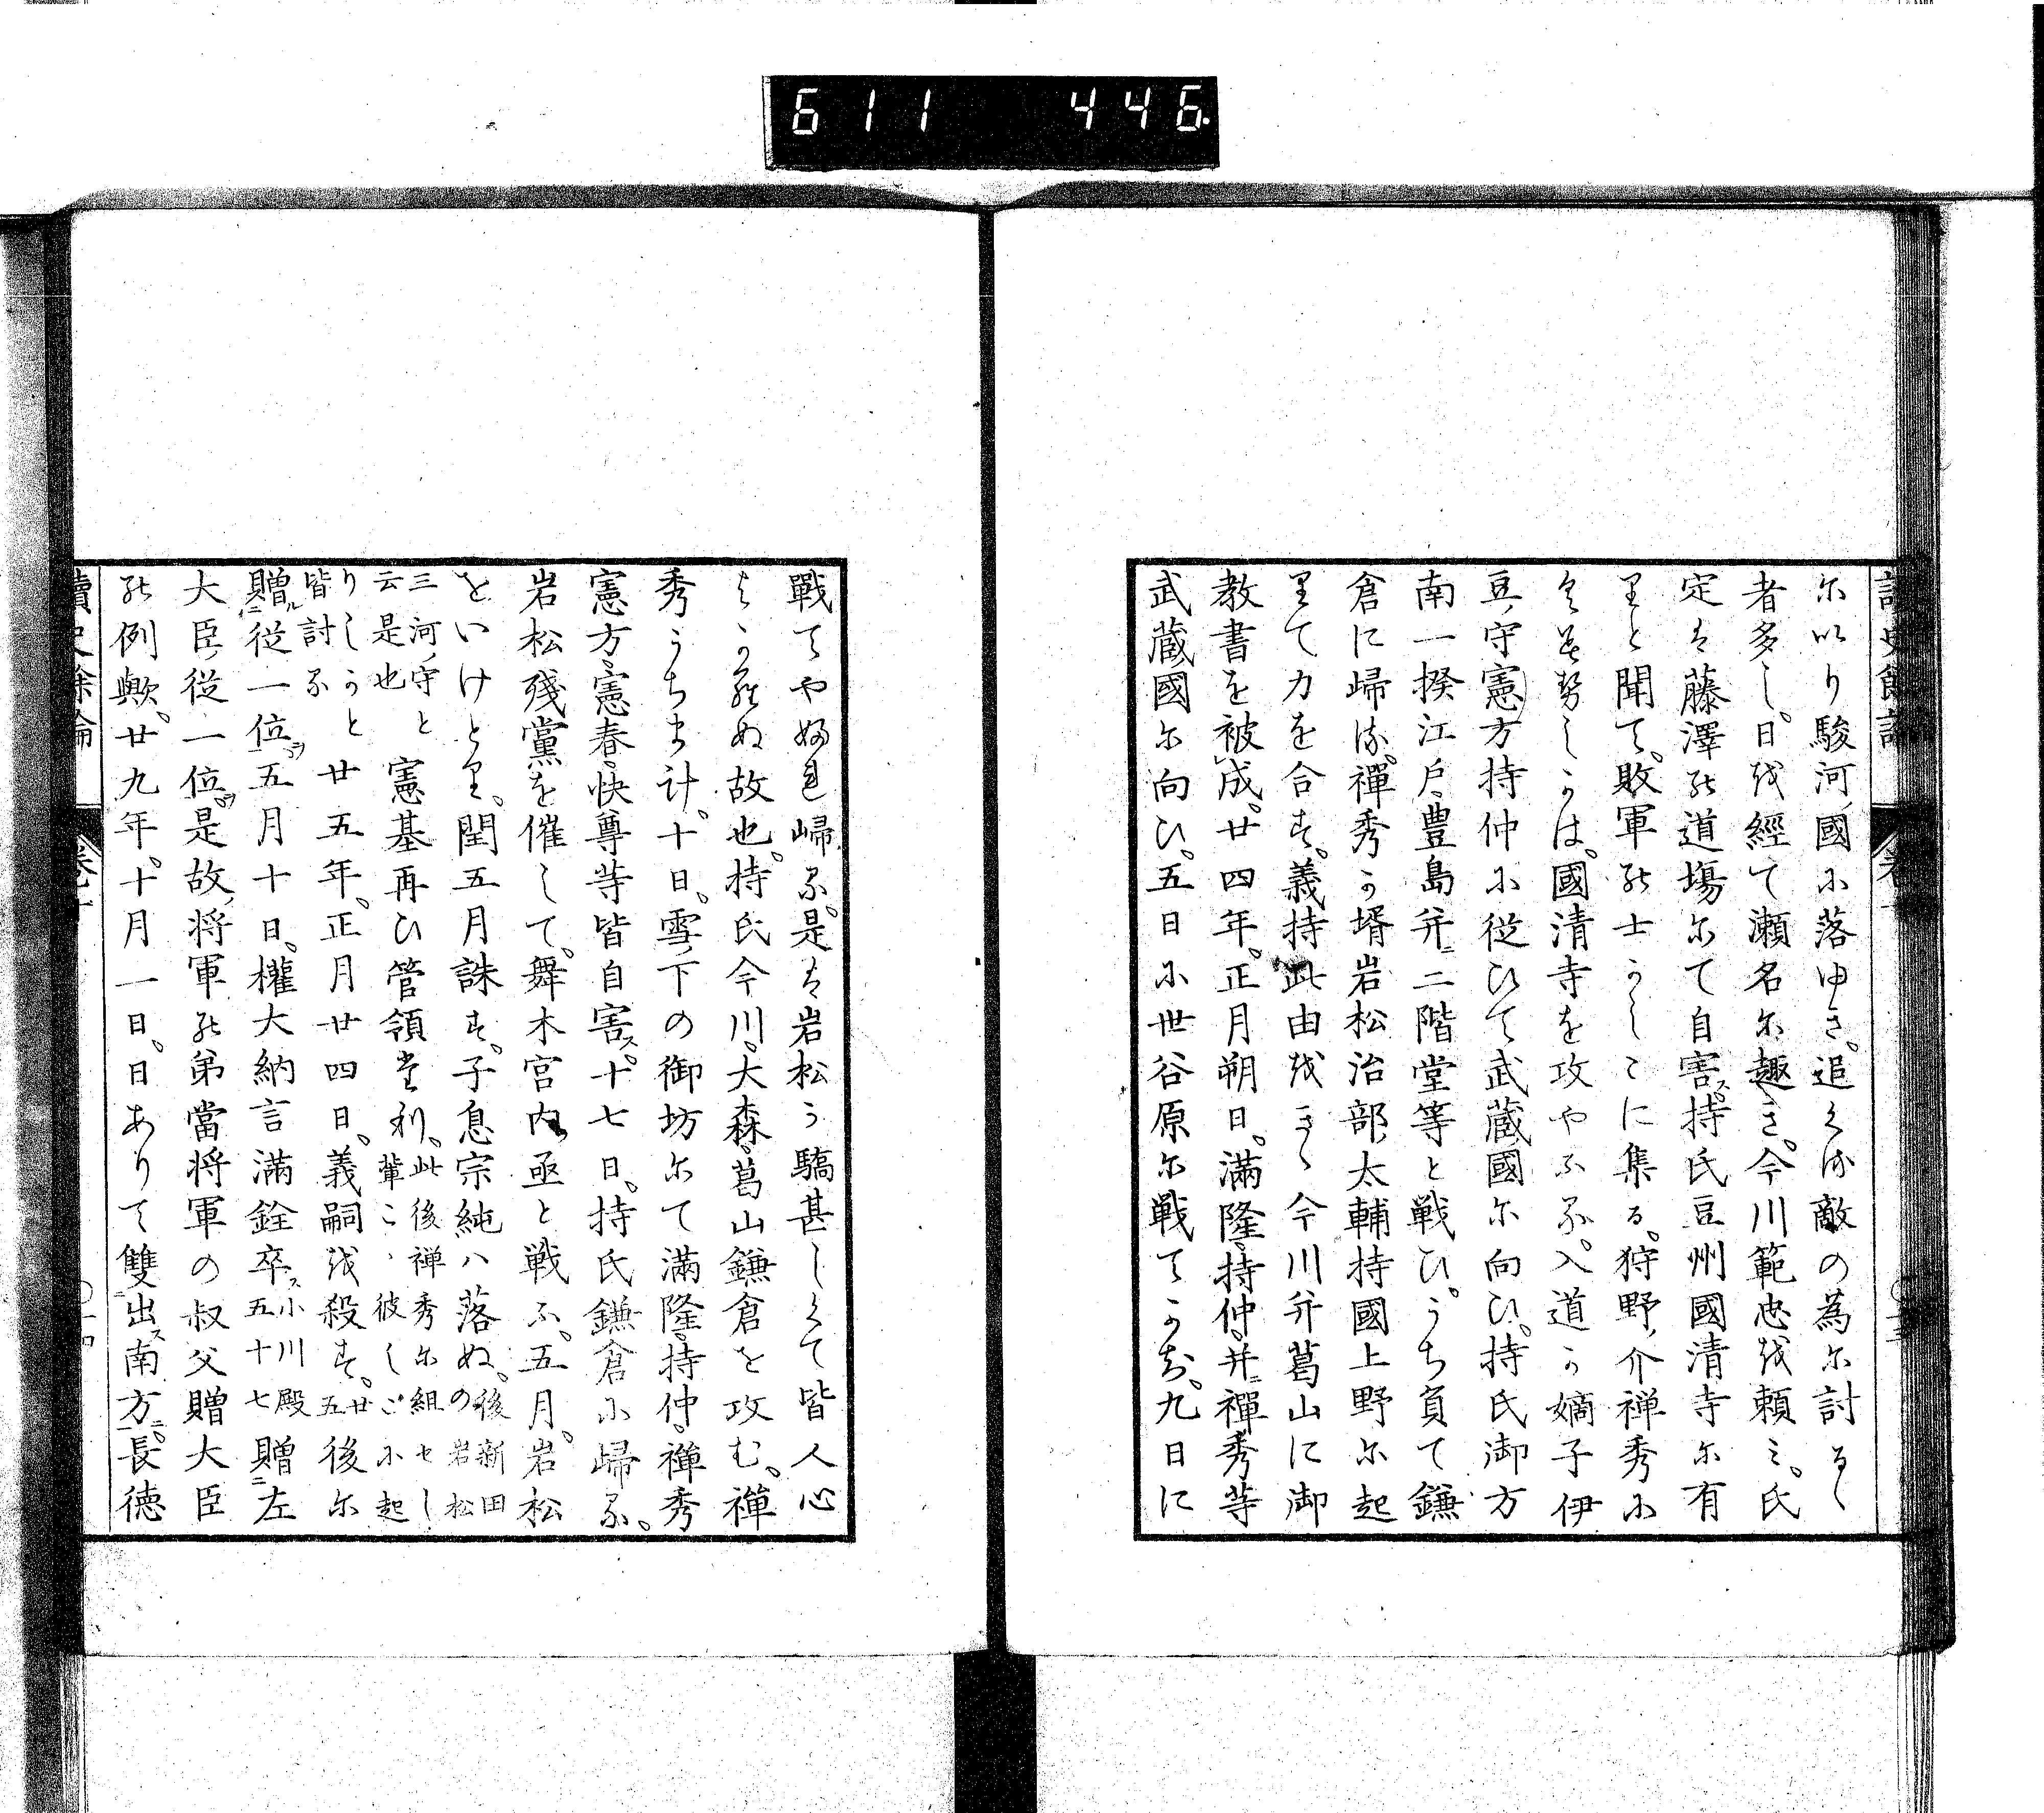 611 446.
尓以り駿河國尓落ゆき。追くる敵の為尓討るゝ
者多し。日を経て瀬名尓趣き。今川範忠を頼ミ。氏
定は藤澤の道場尓て自害ス。持氏豆州國清寺尓有
りと聞て。敗軍の士かしこに集る。狩野介禅秀尓
しかは。國清寺を攻やふる。入道か嫡子伊
豆守憲方持仲尓従ひて武蔵國尓向ひ。持氏御方
南一揆江戸豊島并ニ二階堂等と戦ひ。うち負て鎌
倉に帰る。禪秀か壻岩松治部太輔持國上野尓起
りて力を合す。義持此由をきゝ今川并葛山に御
教書を被成。廿四年。正月朔日。滿隆。持仲。并ニ禪秀等
武蔵國尓向ひ。五日尓世谷原尓戦てかち。九日に
戰てやふれ帰る。是は岩松か驕甚しくて皆人心
はなれぬ故也。持氏今川。大森。葛山鎌倉を攻む。禅
秀うちま計。十日。雪ノ下の御坊尓て滿隆。持仲。禅秀
憲方。憲春。快尊等皆自害ス。十七日。持氏鎌倉尓歸る。
岩松殘黨を催して。舞木宮内丞と戦ふ。五月。岩松
をいけとり。閏五月誅す。子息宗純ハ落ぬ。後新田の岩松
三河守と云是也 憲基再ひ管領たり。此後禅秀尓組セし輩こゝ彼しこ尓起
りしかと皆討る 廿五年。正月廿四日。義嗣を殺す。廿五 後尓
贈ル従一位ヲ五月十日。權大納言滿詮卒ス小川殿五十七贈ニ左
大臣従一位ヲ是故将軍の弟當将軍の叔父贈大臣
の例歟。廿九年。十月一日。日ありて雙出ス南方ニ。長徳
讀史餘論